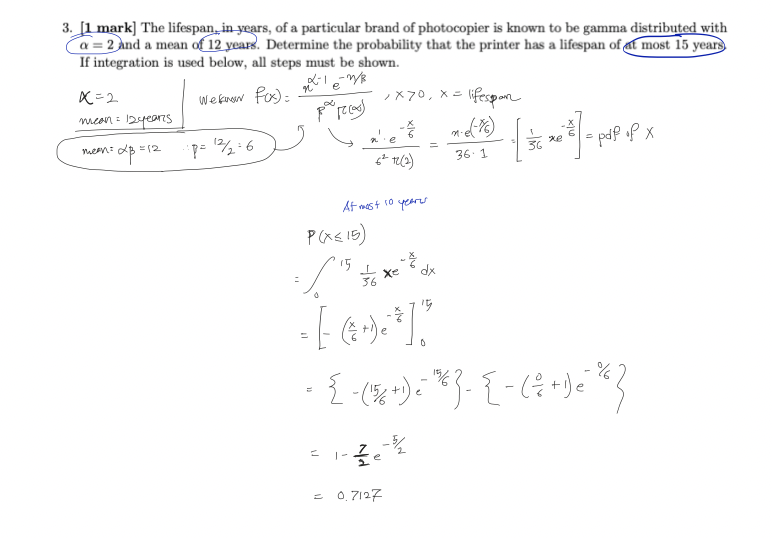 3. [1 mark] The lifespan, in years, of a particular brand of photocopier is known to be gamma distributed with
α = 2 and a mean of 12 years. Determine the probability that the printer has a lifespan of at most 15 years.
If integration is used below, all steps must be shown.
α = 2
mean = 12 years
mean = αβ = 12 ∴ β = 12/2 = 6
we know f(x) = x^(α-1) e^(-x/β) / β^α Γ(α) , x > 0, x = lifespan
x^1 · e^(-x/6) / 6^2 Γ(2) = x·e^(-x/6) / 36·1 = [1/36 xe^(-x/6)] = pdf of X
At most 10 years
P(x ≤ 15)
= ∫_0^15 1/36 xe^(-x/6) dx
= [-(x/6 + 1)e^(-x/6)]_0^15
= {-(15/6 + 1)e^(-15/6)} - {-(0/6 + 1)e^(-0/6)}
= 1 - 7/2 e^(-5/2)
= 0.7127